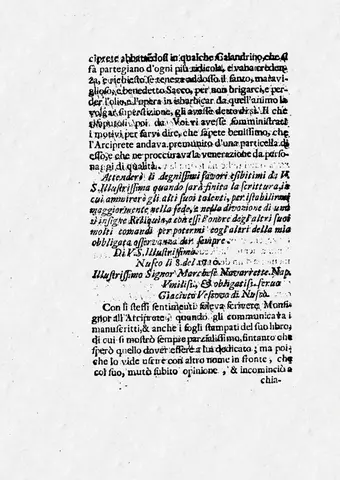 ciprete abbattendosi in qualche Calandrino, che si
fà partegiano d'ogni più ridicola, e vana creden-
za, e richiesto se teneva addosso il santo, maravi-
glioso, e benedetto Sacco, per non brigarci, e per-
der l'olio, e l'opera in isbarbicar da quell'animo la
volgar superstizione, gli avesse detto di sì. Il ch
disputolì poi da Voi vi avesse somministrate
i motivi, per farvi dire, che sapete benissimo, che
l'Arciprete andava premunito d'una particella di
esso, e che ne proccurava la venerazione da perso-
naggi di qualità.
Attenderò li degnissimi favori esibitimi da V.
S. Illustrissima quando sarà finita la scrittura, in
cui ammirerò gli alti suoi talenti, per istabilirmi
maggiormente nella fede, e nella divozione di una
sì insigne Reliquia, e con essi l'onore degl'altri suoi
molti comandi per potermi cogl'altri della mia
obbligata osservanza dir sempre.
Di V. S. Illustrissima.
Nusco li 8. del 1710.
Illustrissimo Signor Marchese Navarrette. Nap.
Umiliss. & obligatiss. serua
Giaciuto Vescovo di Nusco.
Con sì stessi sentimenti soleva scrivere Monsi-
gnor all'Arciprete, quando gli communicata i
manuscritti, & anche i fogli stampati del suo libro,
di cui si mostrò sempre parzialissimo, fintanto che
sperò quello dover essere a lui dedicato; ma poi-
che lo vide uscire con altro nome in fronte, che
col suo, mutò subito opinione, & incominciò a
chia-